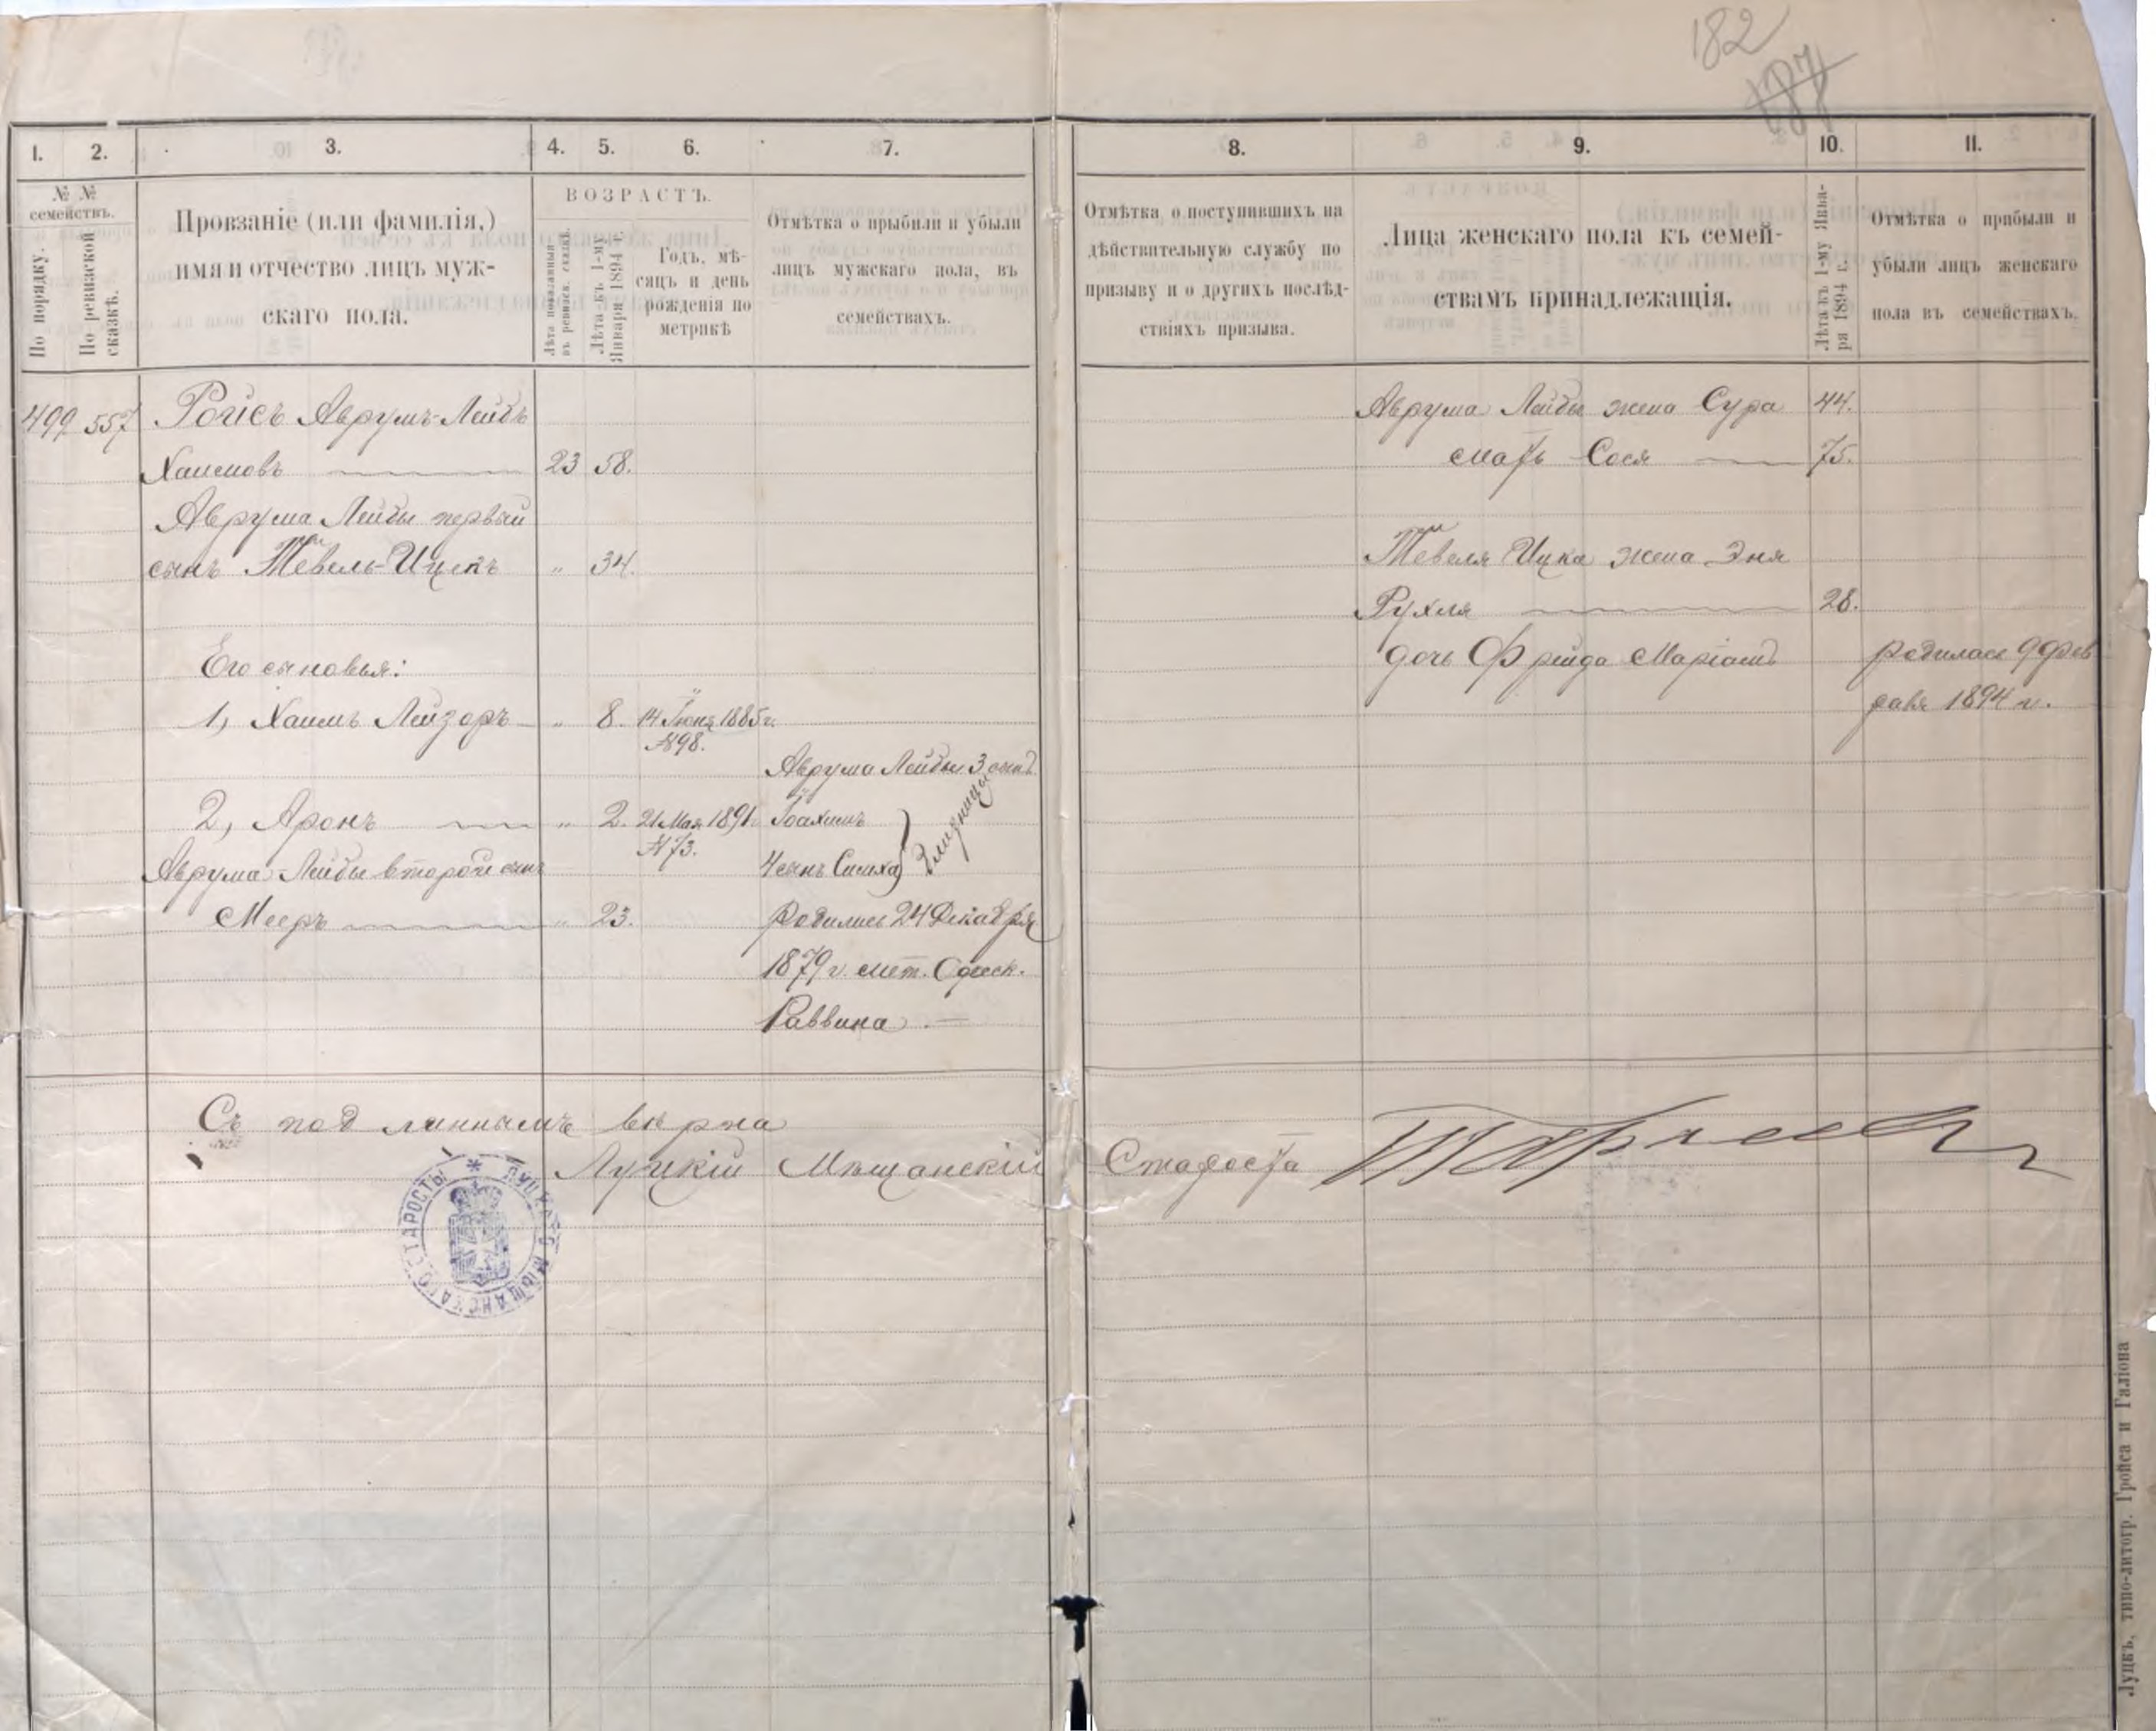 182
187
1.
2.
3.
4.
5.
6.
7.
8.
9.
10.
11.
№ №
семействъ.
По порядку.
По ревизской
сказкѣ.
Прозваніе (или фамилія,)
имя и отчество лицъ муж-
скаго пола.
ВОЗРАСТЪ.
Лѣта показанныя
въ ревизск. сказкѣ.
Лѣта къ 1-му
Января 1894 г.
Годъ, мѣ-
сяцъ и день
рожденія по
метрикѣ
Отмѣтка о прыбыли и убыли
лицъ мужскаго пола, въ
семействахъ.
Отмѣтка о поступившихъ на
дѣйствительную службу по
призыву и о другихъ послѣд-
ствіяхъ призыва.
Лица женскаго пола къ семей-
ствамъ принадлежащія.
Лѣта къ 1-му Янва-
ря 1894 г.
Отмѣтка о прибыли и
убыли лицъ женскаго
пола въ семействахъ.
499 557 Ройсъ Аврумъ-Лейбъ
Хаимовъ 23 58.
Аврума Лейбы первый
сынъ Тевель-Ицекъ " 34.
Его сыновья:
1, Хаимъ Лейзоръ " 8. 14 Іюня 1885 г.
№98.
2, Аронъ " 2. 21 Мая 1891 г.
№73.
Аврума Лейбы второй сынъ
Мееръ " 23.
Аврума Лейбы 3 сынъ
Іоахимъ
4 сынъ Симха
близнецы
родились 24 Декабря
1879 г. мет. Одеск.
Раввина
Аврума Лейбы жена Сура 44.
мать Сося 75.
Тевеля Ицка жена Эня
Рухля 28.
дочь Фрейда Маріамъ родилась 9 Фев
раля 1894 г.
Съ подлиннымъ вѣрна
Луцкій Мѣщанскій Староста
ЛУЦКАГО МѢЩАНСКАГО СТАРОСТЫ
Луцкъ, типо-литогр. Гройса и Галіона